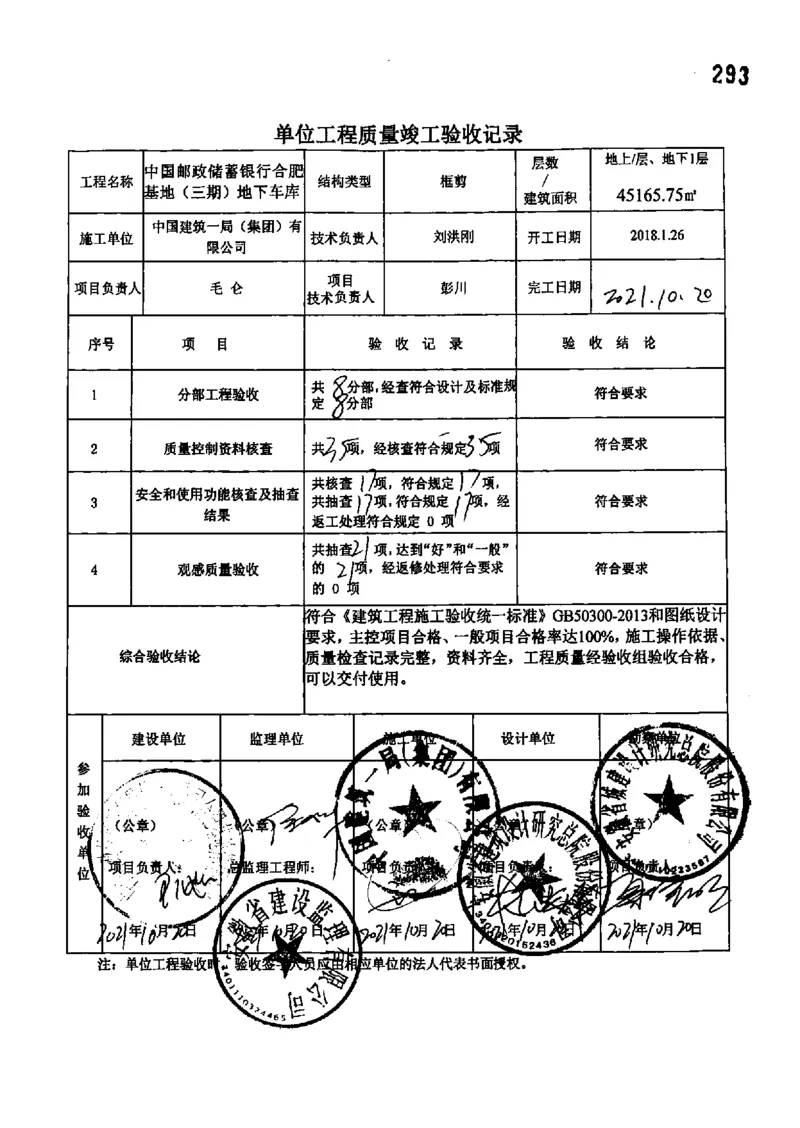 293
单位工程质量竣工验收记录
工程名称
中国邮政储蓄银行合肥
基地（三期）地下车库
结构类型
框剪
层数
/
建筑面积
地上/层、地下1层
45165.75㎡
施工单位
中国建筑一局（集团）有
限公司
技术负责人
刘洪刚
开工日期
2018.1.26
项目负责人
毛仑
项目
技术负责人
彭川
完工日期
2021.10.20
序号
项 目
验 收 记 录
验 收 结 论
1
分部工程验收
共 8分部,经查符合设计及标准规
定 8分部
符合要求
2
质量控制资料核查
共35项，经核查符合规定35项
符合要求
3
安全和使用功能核查及抽查
结果
共核查 17项，符合规定 17项，
共抽查17项,符合规定 17项，经
返工处理符合规定 0 项
符合要求
4
观感质量验收
共抽查21 项,达到“好”和“一般”
的 21项，经返修处理符合要求
的 0 项
符合要求
综合验收结论
符合《建筑工程施工验收统一标准》GB50300-2013和图纸设计
要求，主控项目合格、一般项目合格率达100%，施工操作依据、
质量检查记录完整，资料齐全，工程质量经验收组验收合格，
可以交付使用。
参加验收单位
建设单位
监理单位
施工单位
设计单位
勘察单位
（公章）
（公章）
（公章）
（公章）
项目负责人：
总监理工程师：
项目负责人：
项目负责人：
项目负责人
2021年10月20日
2021年10月20日
2021年10月20日
2021年10月20日
2021年10月20日
安徽省建设监理有限公司
3401110324465
注：单位工程验收时，验收签字人员应由相应单位的法人代表书面授权。